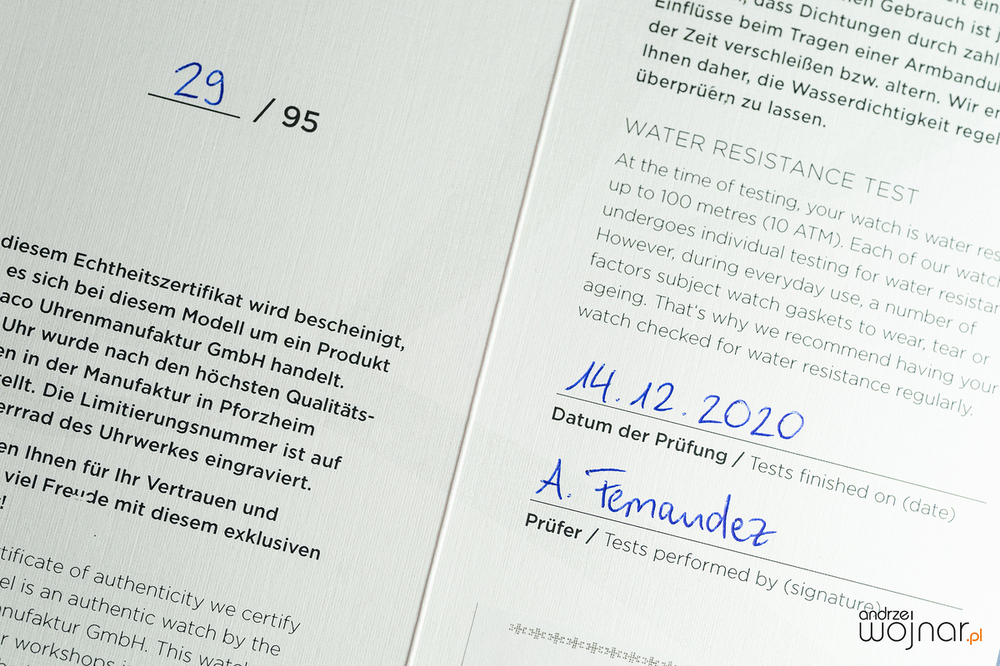 29 / 95
diesem Echtheitszertifikat wird bescheinigt,
es sich bei diesem Modell um ein Produkt
Uhrenmanufaktur GmbH handelt.
Uhr wurde nach den höchsten Qualitäts-
in der Manufaktur in Pforzheim
Die Limitierungsnummer ist auf
des Uhrwerkes eingraviert.
Ihnen für Ihr Vertrauen und
viel Freude mit diesem exklusiven
of authenticity we certify
is an authentic watch by the
GmbH. This
workshops
dass Dichtungen durch
Einflüsse beim Tragen einer
der Zeit verschleißen bzw. altern. Wir
Ihnen daher, die Wasserdichtigkeit
überprüern zu lassen.
WATER RESISTANCE TEST
At the time of testing, your watch is water
up to 100 metres (10 ATM). Each of our
undergoes individual testing for water
However, during everyday use, a number of
factors subject watch gaskets to wear, tear or
ageing. That's why we recommend having your
watch checked for water resistance regularly.
14.12.2020
Datum der Prüfung / Tests finished on (date)
A. Fernandez
Prüfer / Tests performed by (signature)
andrzej
wojnar.pl